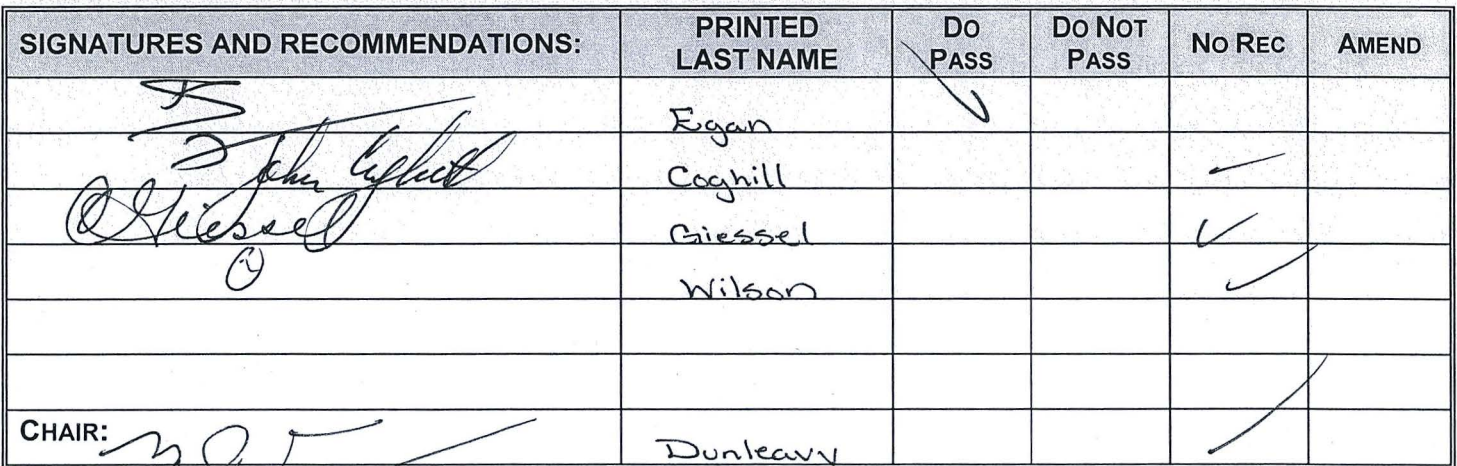 SIGNATURES AND RECOMMENDATIONS: PRINTED LAST NAME DO PASS DO NOT PASS NO REC AMEND
Egan ✓
John Coghill Coghill –
Giessel Giessel ✓
Wilson ✓
CHAIR: Dunleavy ✓